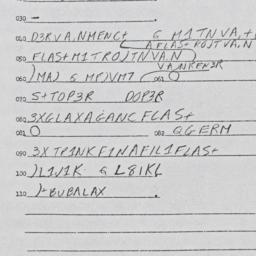 030 —
040 D3RVA,NMENC+ G M1TNVA,+
AFLAS+ POJTVA,N
050 FLAS+M1TROJTNVA,N
VA,NRFN3R
060 )MA) G MP)VM7 061 O
070 S+TOP3R DOP3R
080 3XGLAXAGANCFLAS+
081 O 082 QGERM
090 3XTP1NKF1NAFIL1FLAS+
100 )L1V1K G L81KL
110 )+BUBALAX